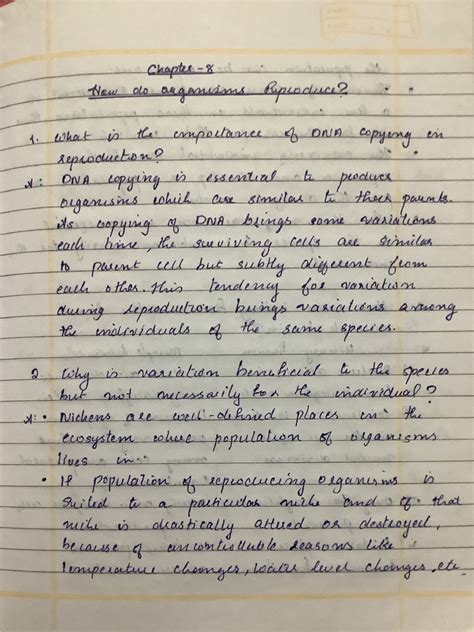 Chapter-8
How do organisms Reproduce?
1. What is the importance of DNA copying in
reproduction?
A: DNA copying is essential to produce
organisms which are similar to their parents.
its copying of DNA brings some variations
each time, the surviving cells are similar
to parent cell but subtly different from
each other. this tendency for variation
during reproduction brings variations among
the individuals of the same species.
2. Why is variation beneficial to the species
but not necessarily for the individual?
A: • Nichens are well-defined places in the
ecosystem where population of organisms
lives in.
• If population of reproducing organisms is
Suited to a particular niche and if that
niche is drastically altered or destroyed,
because of uncontrollable reasons like
temperature changes, water level changes, etc